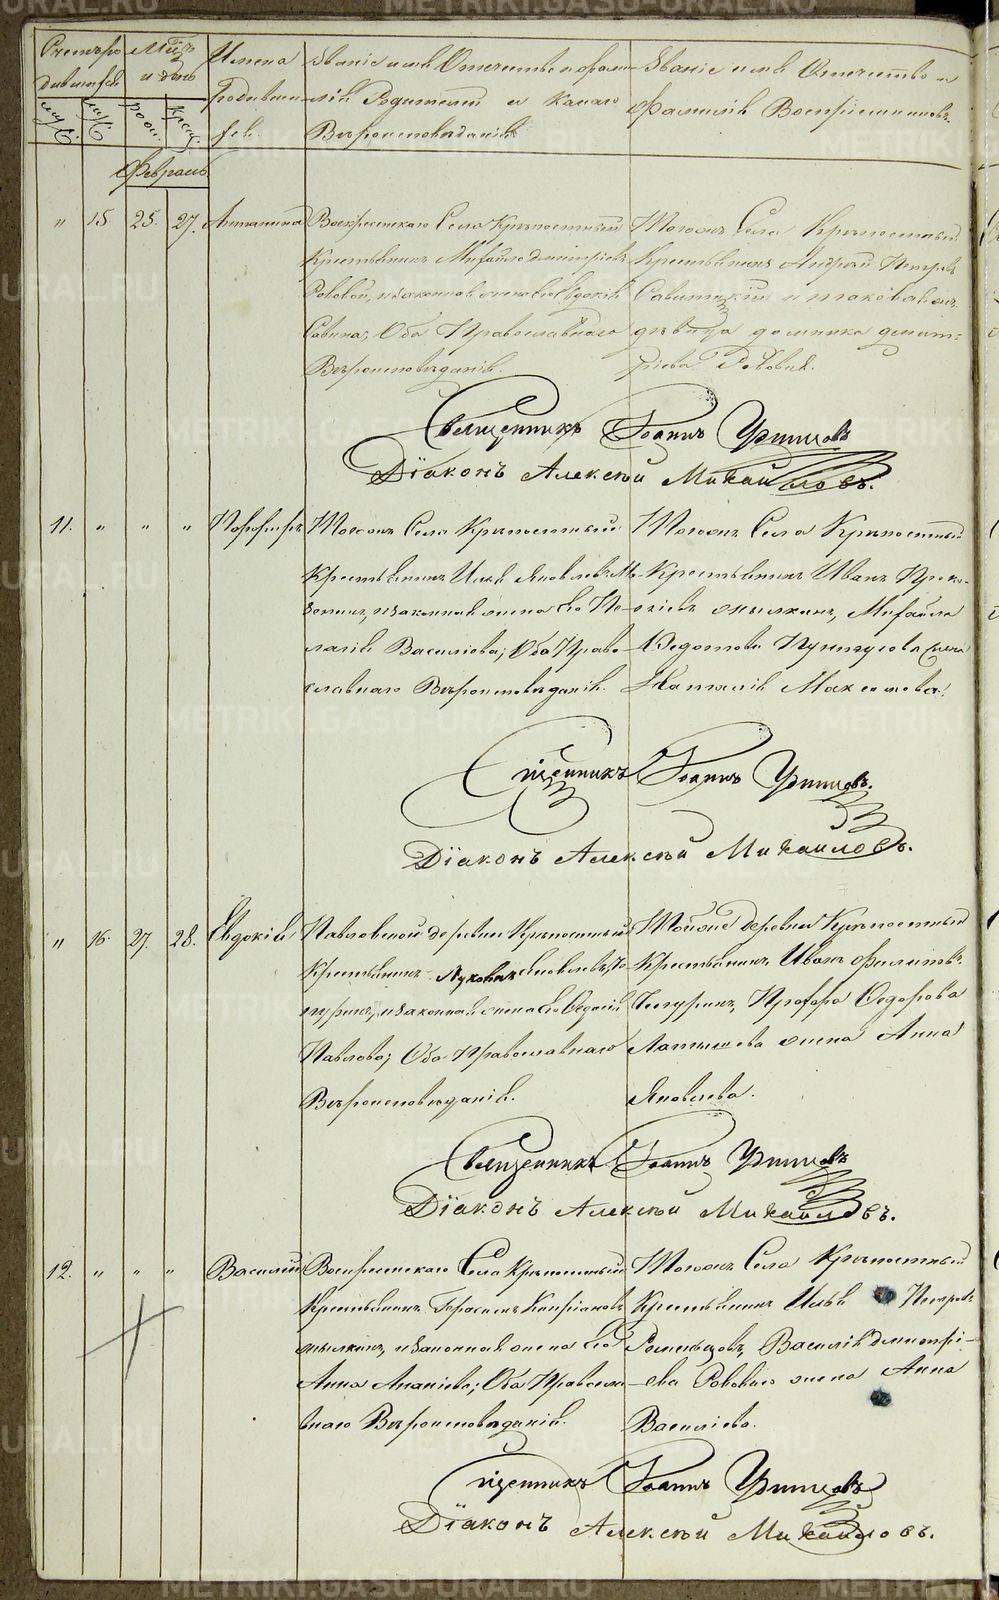 Счетъ ро
дившихся
Мѣсяцъ
и день
Имена
Родивши
хся.
Званіе имя Отчество и фами
лія Родителей и какого
Вѣроисповѣданія
Званіе имя Отчество и
Фамилія Воспріемниковъ.
Муж.
Жен.
Рожд.
Крещ.
Февраль
" 15. 25. 27. Антонина
Воскресенскаго Села Крѣпостный
Крестьянинъ Михайло Димитріевъ
и законная жена его Евдокія
Савина; Оба Православнаго
Вѣроисповѣданія.
Тогожъ Села Крѣпостный
Крестьянинъ Андрей Петровъ
и таковаяжъ
дѣвица Домника Димит-
ріева
Священникъ Іоаннъ
Діаконъ Алексѣй Михаиловъ.
11. " " " Порфирій
Тогожъ Села Крѣпостный
Крестьянинъ Илья Яковлевъ
и законная жена его Пе-
лагія Василіева; Оба Право-
славнаго Вѣроисповѣданія.
Тогожъ Села Крѣпостный
Крестьянинъ Иванъ Проко-
піевъ Михайла
Федотова жена
Наталія Максимова.
Священникъ Іоаннъ
Діаконъ Алексѣй Михаиловъ.
" 16. 27. 28. Евдокія
Павловской деревни Крѣпостный
Крестьянинъ Яковлевъ
и законная жена его
Павлова; Оба Православнаго
Вѣроисповѣданія.
Тойже Деревни Крѣпостный
Крестьянинъ Иванъ Филиповъ
Прохора Федорова
жена Анна
Яковлева.
Священникъ Іоаннъ
Діаконъ Алексѣй Михаиловъ.
12. " " " Василій
Воскресенскаго Села Крѣпостный
Крестьянинъ Герасимъ Кипріановъ
и законная жена его
Анна Ананіева; Оба Правосла-
внаго Вѣроисповѣданія.
Тогожъ Села Крѣпостный
Крестьянинъ Илья Петровъ
Василія Димитрі-
ева жена Анна
Василіева.
Священникъ Іоаннъ
Діаконъ Алексѣй Михаиловъ.
METRIKI.GASO-URAL.RU